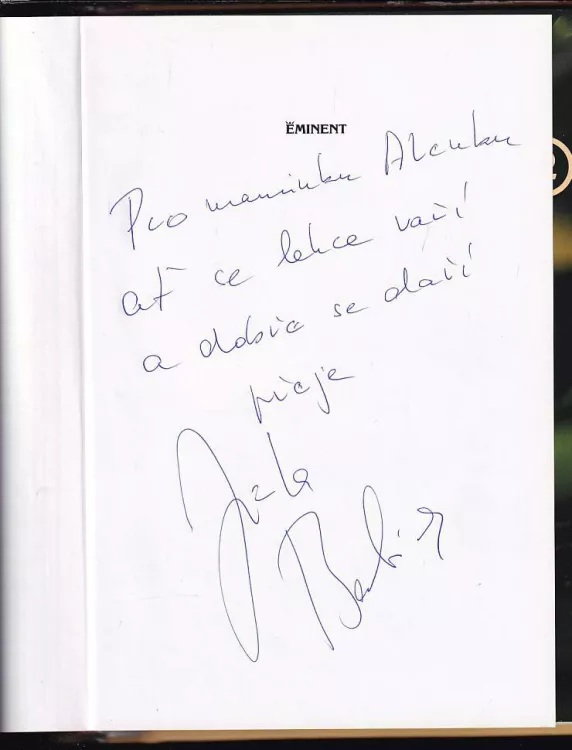 EMINENT
Pro maminku Alenku
ať se lehce vaří
a dobře se daří
přeje